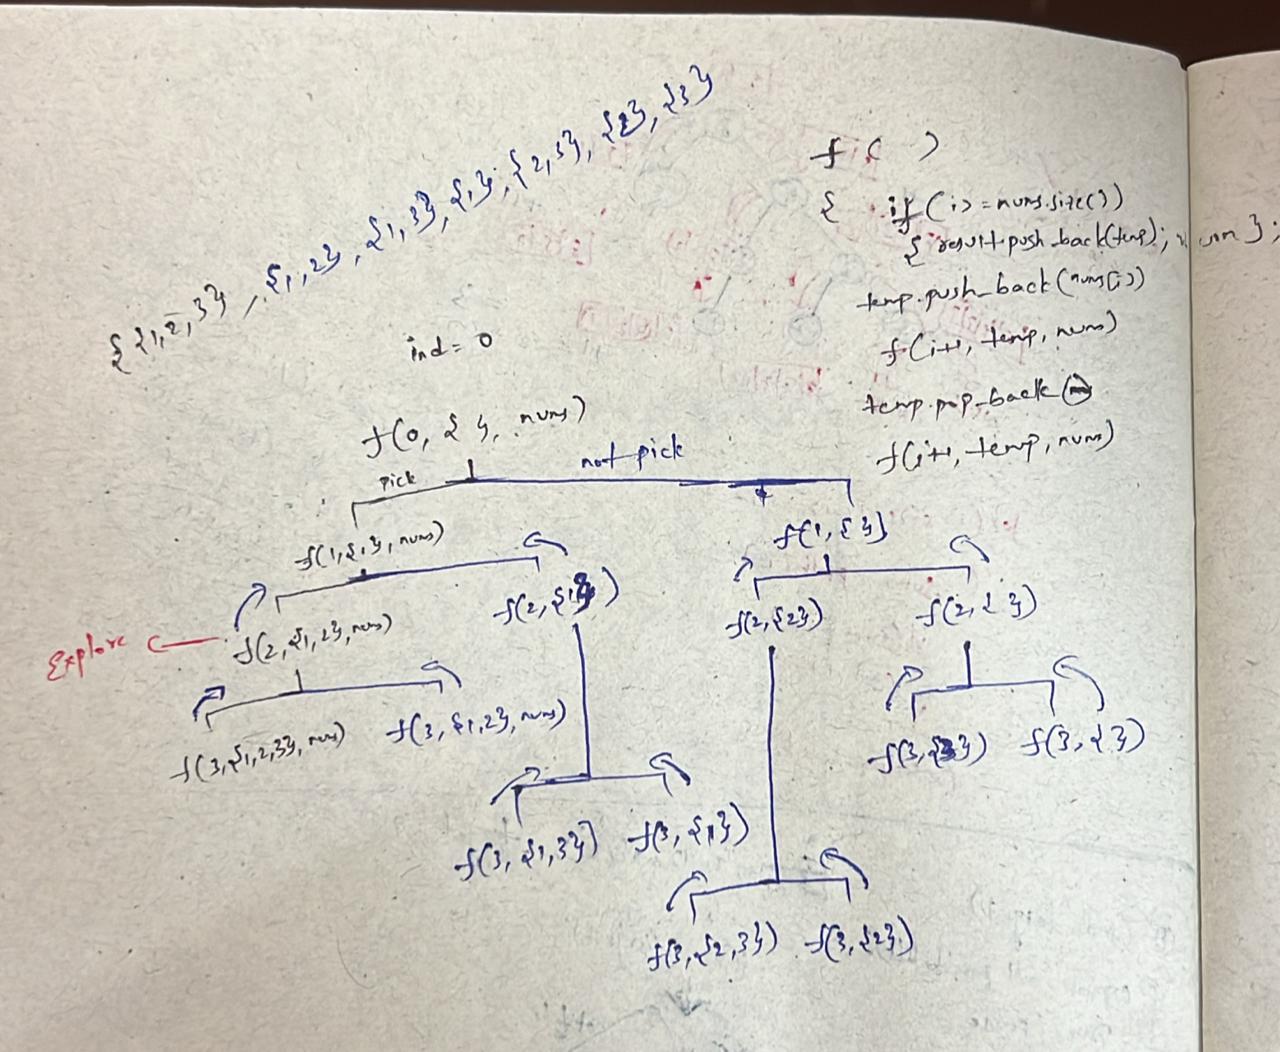 { {1,2,3} , {1,2} , {1,3}, {1}, {2,3}, {2}, {3}
f ( )
{ if (i>=nums.size())
{ result.push_back(temp);
temp.push_back(nums[i])
f(i+1, temp, nums)
temp.pop_back
f(i+1, temp, nums)
ind = 0
f(0, { }, nums)
pick not pick
f(1,{1}, nums) f(1, { })
Explore f(2,{1,2}, nums) f(2, {1}) f(2,{2}) f(2, { })
f(3,{1,2,3}, nums) f(3, {1,2}, nums) f(3,{3}) f(3, { })
f(3, {1,3}) f(3, {1})
f(3, {2,3}) f(3, {2})